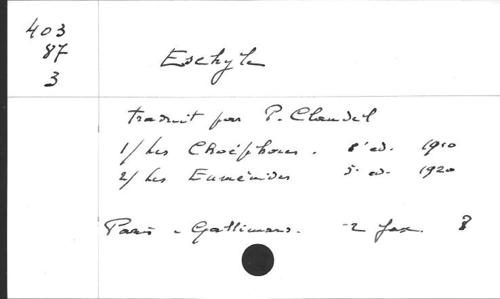 403
87
3
Eschyle
traduit par P. Claudel
1/ Les Choéphores. 8e ed. 1910
2/ Les Euménides 5e ed. 1920
Paris - Gallimard. - 2 fax.